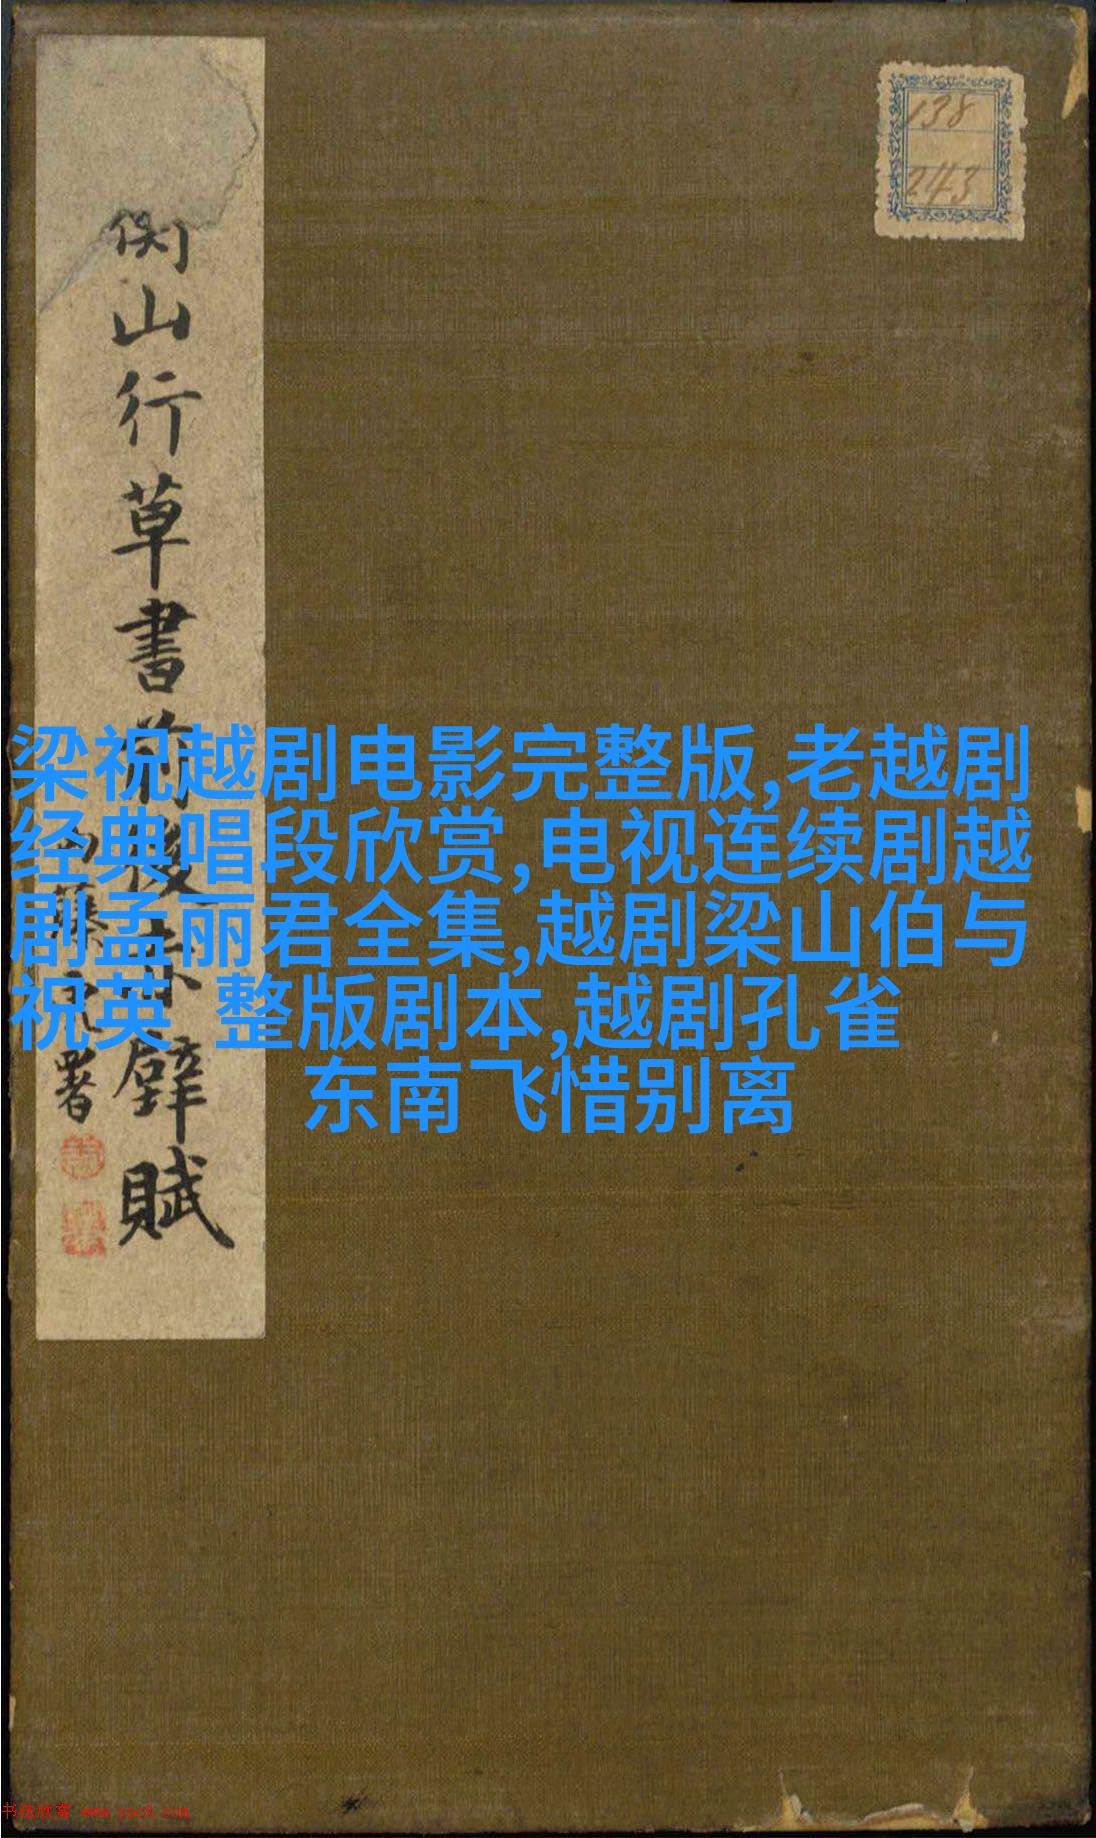 138
243
山行草書前後赤壁賦
署
梁祝越剧电影完整版,老越剧
经典唱段欣赏,电视连续剧越
剧孟丽君全集,越剧梁山伯与
祝英 整版剧本,越剧孔雀
东南飞惜别离
书法欣赏 www.yac8.com